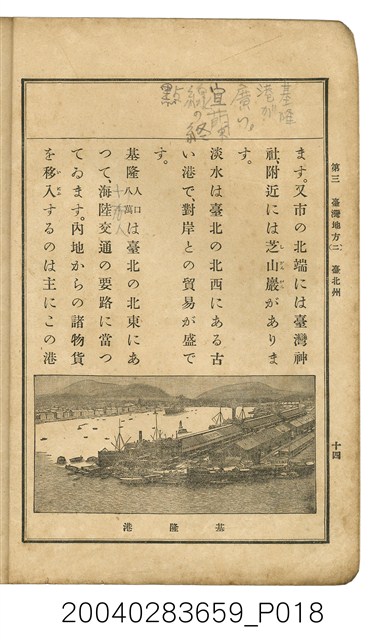 第三　臺灣地方(二)　臺北州
十四
基隆
港
廣い
宜蘭
線の終
點
ます。又市の北端には臺灣神
社、附近には芝山巖がありま
す。
淡水は臺北の北西にある古
い港で、對岸との貿易が盛で
す。
基隆人口八萬は臺北の北東にあ
つて、海陸交通の要路に當つ
てゐます。內地からの諸物貨
を移入するのは主にこの港
基隆港
20040283659_P018